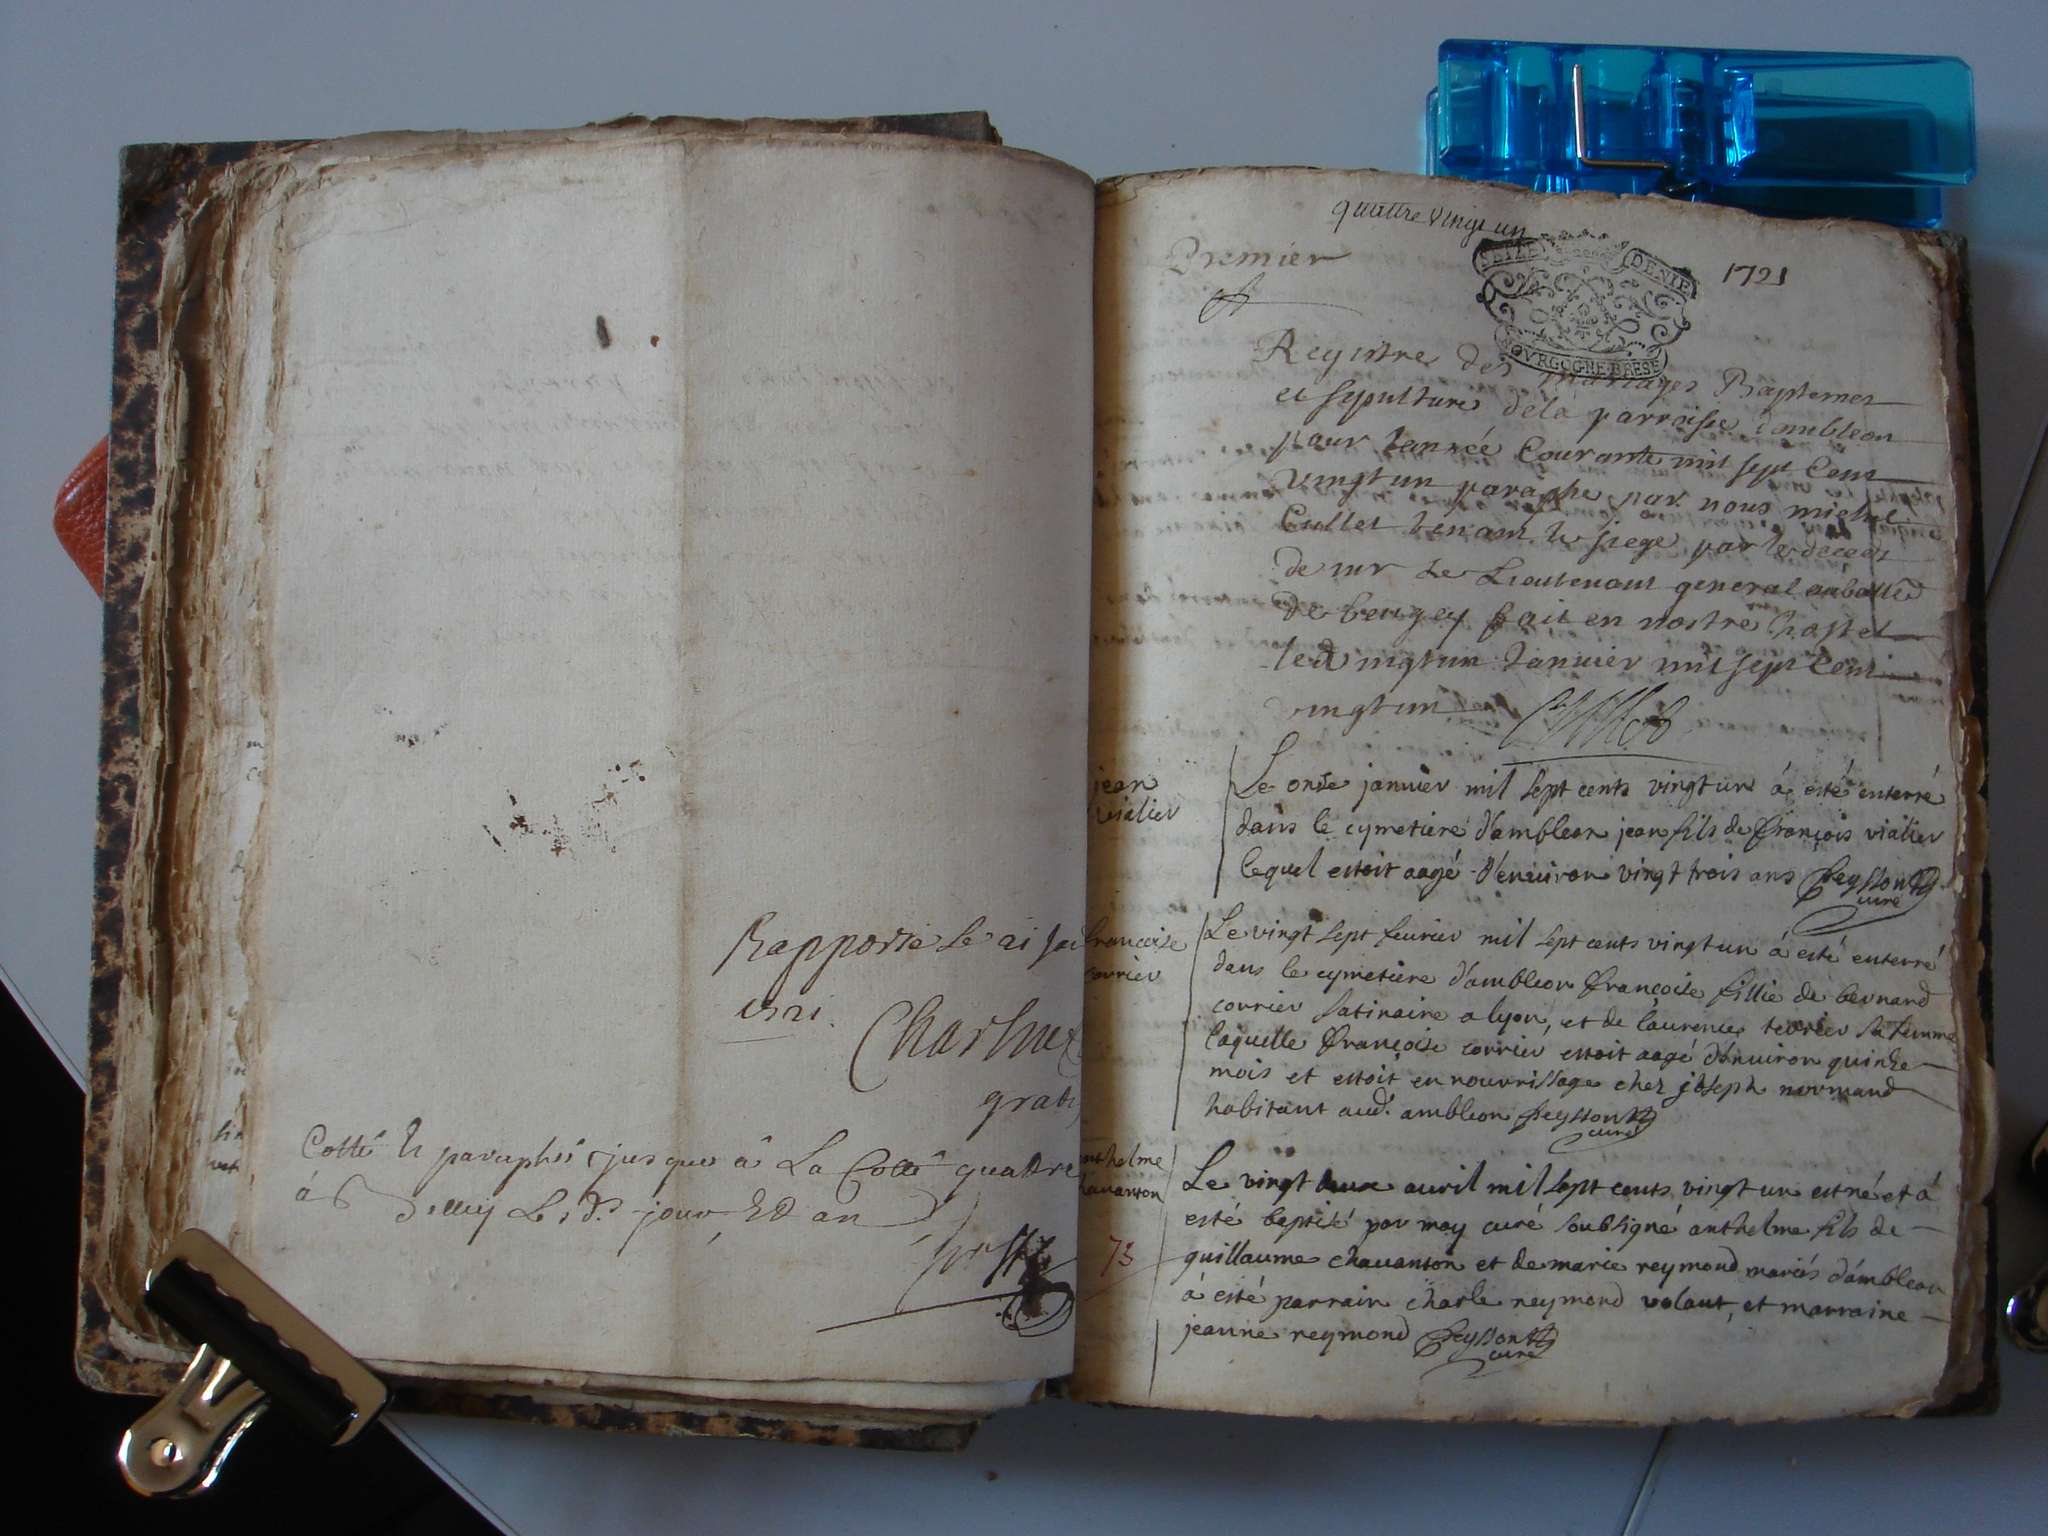 Rapporté le 21 Jan
1721.
Charlue
gratis
Cotté et paraphé jusques à La Cotte quattre
à Belley Led. jour Et an
quattre vingt un
Premier
1721
DENIE
BOVRGOGNE BRESE
Registre des mariages Baptemes
et sepulture dela parroisse d'ambleon
pour L'année Courante mil sept Cent
vingt un paraphe par nous michel
Cullet tenant le siege par le deces
de mr Le Lieutenant general au balliage
De beugey fait en nostre hostel
le vingt un Janvier mil sept Cent
vingt un Cullet
jean
vialier
Le onze janvier mil sept cents vingt un à esté enterré
dans le cymetiere d'ambleon jean fils de François vialier
lequel estoit aagé d'environ vingt trois ans Peysson
curé
francoise
corrier
Le vingt sept feurier mil sept cents vingt un à esté enterré
dans le cymetiere d'ambleon Françoise fillie de bernard
corrier satinaire a lyon, et de laurence terrier sa femme
laquelle Françoise corrier estoit aagé d'environ quinze
mois et estoit en nourrissage chez joseph normand
habitant aud. ambleon Peysson
curé
anthelme
chavanton
73
Le vingt deux avril mil sept cents vingt un est né et à
esté baptisé par moy curé soubsigné anthelme fils de
guillaume chavanton et de marie reymond mariés d'ambleon
à esté parrain charle reymond volant, et marraine
jeanne reymond Peysson
curé